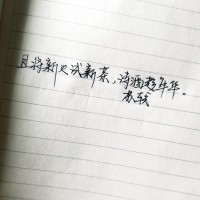 且将新火试新茶，诗酒趁年华。
苏轼